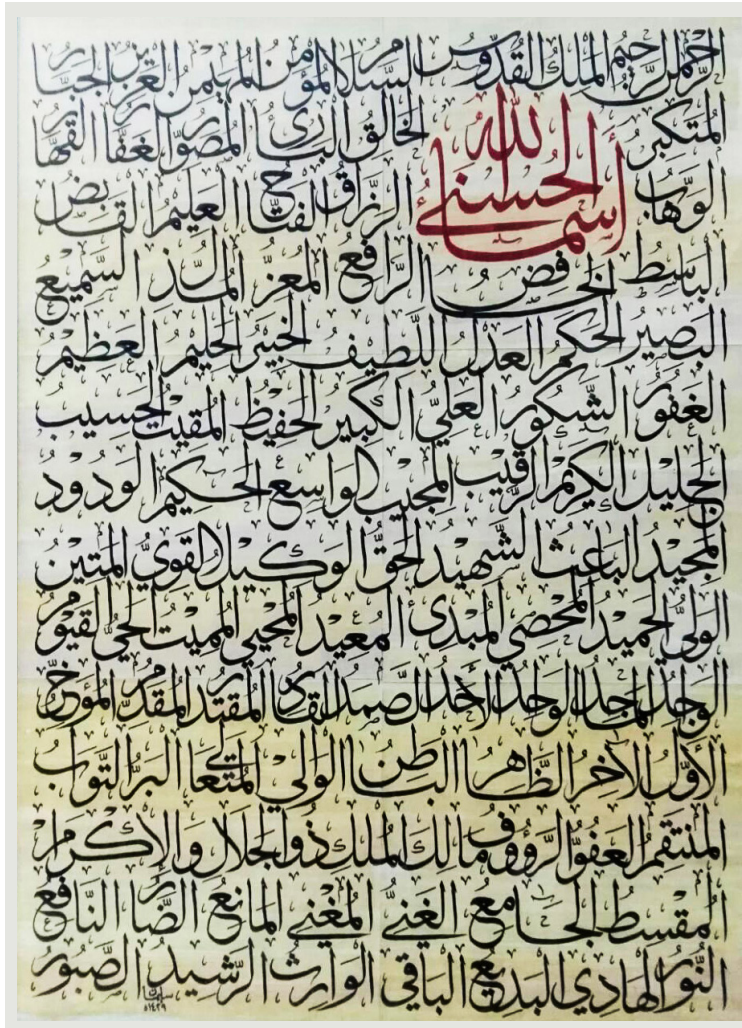 الرَّحْمٰنُ الرَّحِيمُ المَلِكُ القُدُّوسُ السَّلَامُ المُؤْمِنُ المُهَيْمِنُ العَزِيزُ الجَبَّارُ
المُتَكَبِّرُ الخَالِقُ البَارِئُ المُصَوِّرُ الغَفَّارُ القَهَّارُ
أسماء الله الحسنى
الوَهَّابُ الرَّزَّاقُ الفَتَّاحُ العَلِيمُ القَابِضُ
البَاسِطُ الخَافِضُ الرَّافِعُ المُعِزُّ المُذِلُّ السَّمِيعُ
البَصِيرُ الحَكَمُ العَدْلُ اللَّطِيفُ الخَبِيرُ الحَلِيمُ العَظِيمُ
الغَفُورُ الشَّكُورُ العَلِيُّ الكَبِيرُ الحَفِيظُ المُقِيتُ الحَسِيبُ
الجَلِيلُ الكَرِيمُ الرَّقِيبُ المُجِيبُ الوَاسِعُ الحَكِيمُ الوَدُودُ
المَجِيدُ البَاعِثُ الشَّهِيدُ الحَقُّ الوَكِيلُ القَوِيُّ المَتِينُ
الوَلِيُّ الحَمِيدُ المُحْصِي المُبْدِئُ المُعِيدُ المُحْيِي المُمِيتُ الحَيُّ القَيُّومُ
الوَاجِدُ المَاجِدُ الوَاحِدُ الأَحَدُ الصَّمَدُ القَادِرُ المُقْتَدِرُ المُقَدِّمُ المُؤَخِّرُ
الأَوَّلُ الآخِرُ الظَّاهِرُ البَاطِنُ الوَالِي المُتَعَالِي البَرُّ التَّوَّابُ
المُنْتَقِمُ العَفُوُّ الرَّؤُوفُ مَالِكُ المُلْكِ ذُو الجَلَالِ وَالإِكْرَامِ
المُقْسِطُ الجَامِعُ الغَنِيُّ المُغْنِي المَانِعُ الضَّارُّ النَّافِعُ
النُّورُ الهَادِي البَدِيعُ البَاقِي الوَارِثُ الرَّشِيدُ الصَّبُورُ
١٤٢٩